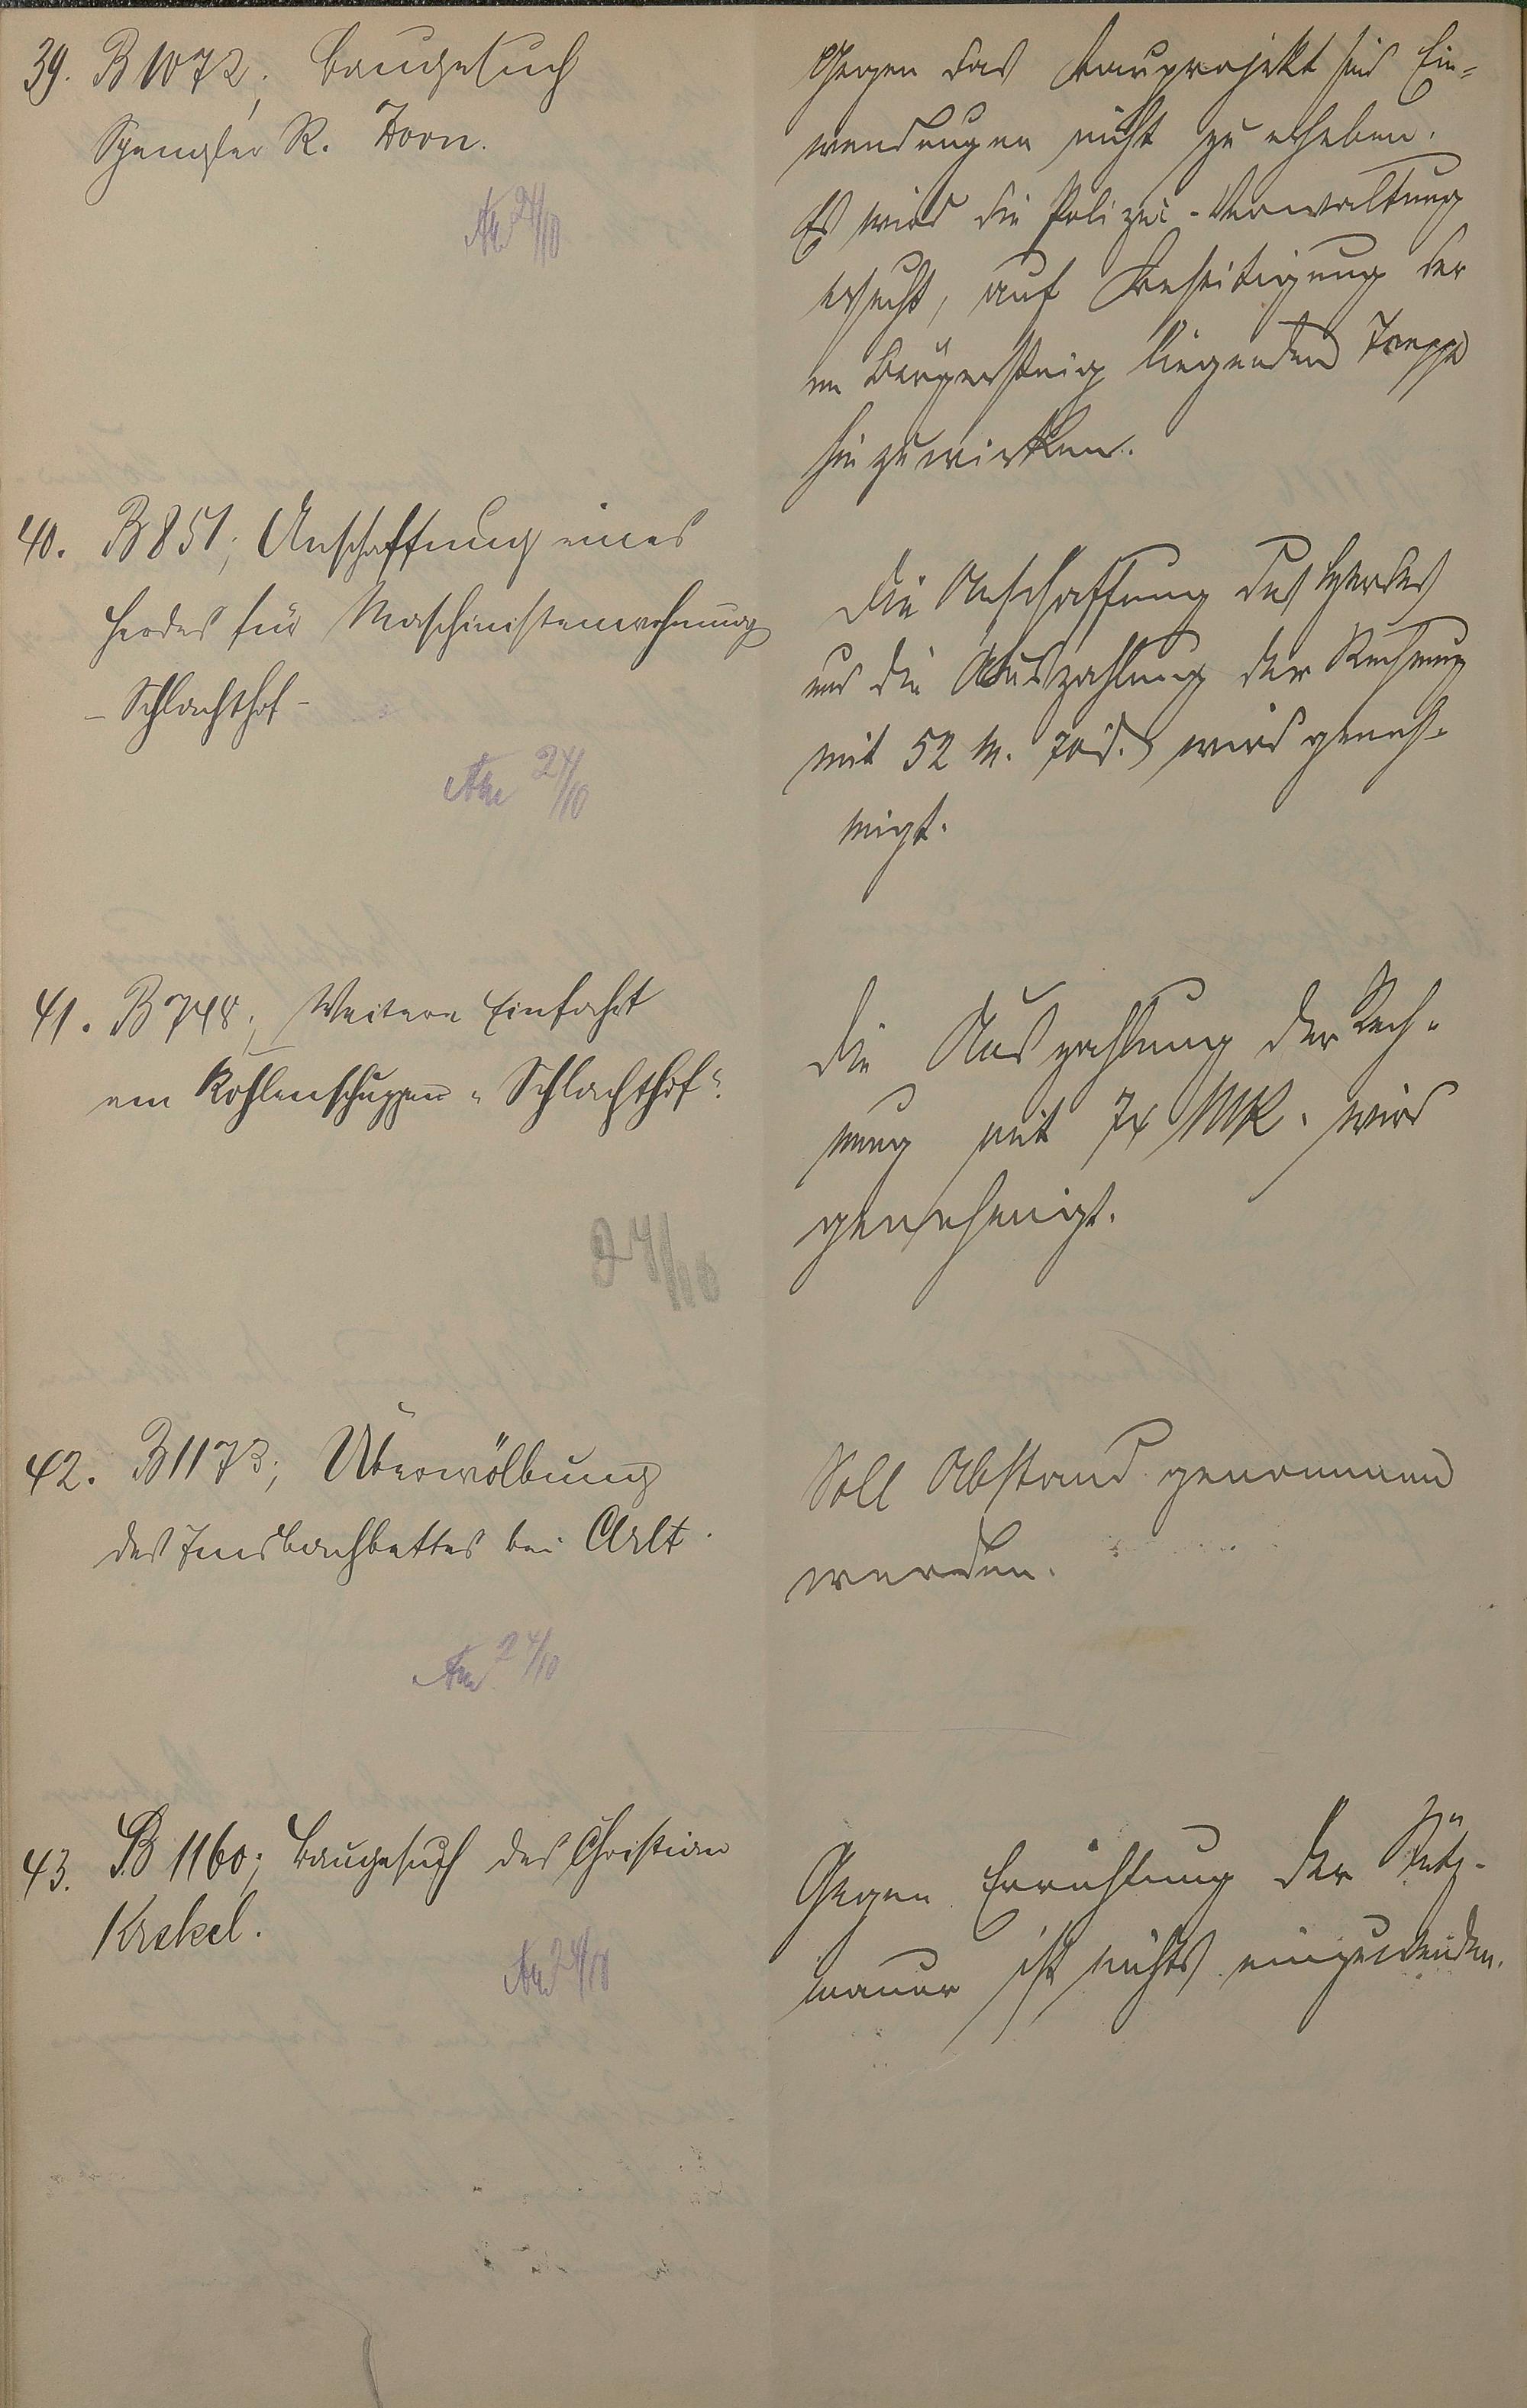 39. B 1072; Baugesuch
Spengler R. Zorn.
24/10
Gegen das Bauprojekt sind Ein-
wendungen nicht zu erheben.
Es wird die Polizei-Verwaltung
ersucht, auf Beseitigung der
im Bürgersteig liegenden Treppe
hinzuwirken.
40. B 851; Anschaffung eines
Herdes für Maschinistenwohnung
- Schlachthof -
24/10
Die Anschaffung des Herdes
und die Auszahlung der Rechnung
mit 52 M. wird geneh-
migt.
41. B 748; Weitere Einfahrt
am Kohlenschuppen "Schlachthof".
24/10
Die Auszahlung der Rech-
nung mit 74 MK. wird
genehmigt.
42. B 1173; Überwölbung
des Imsbachbettes bei Arlt.
24/10
Soll Abstand genommen
werden.
43. B 1160; Baugesuch des Christian
Krekel.
24/10
Gegen Errichtung der Stütz-
mauer ist nichts einzuwenden.